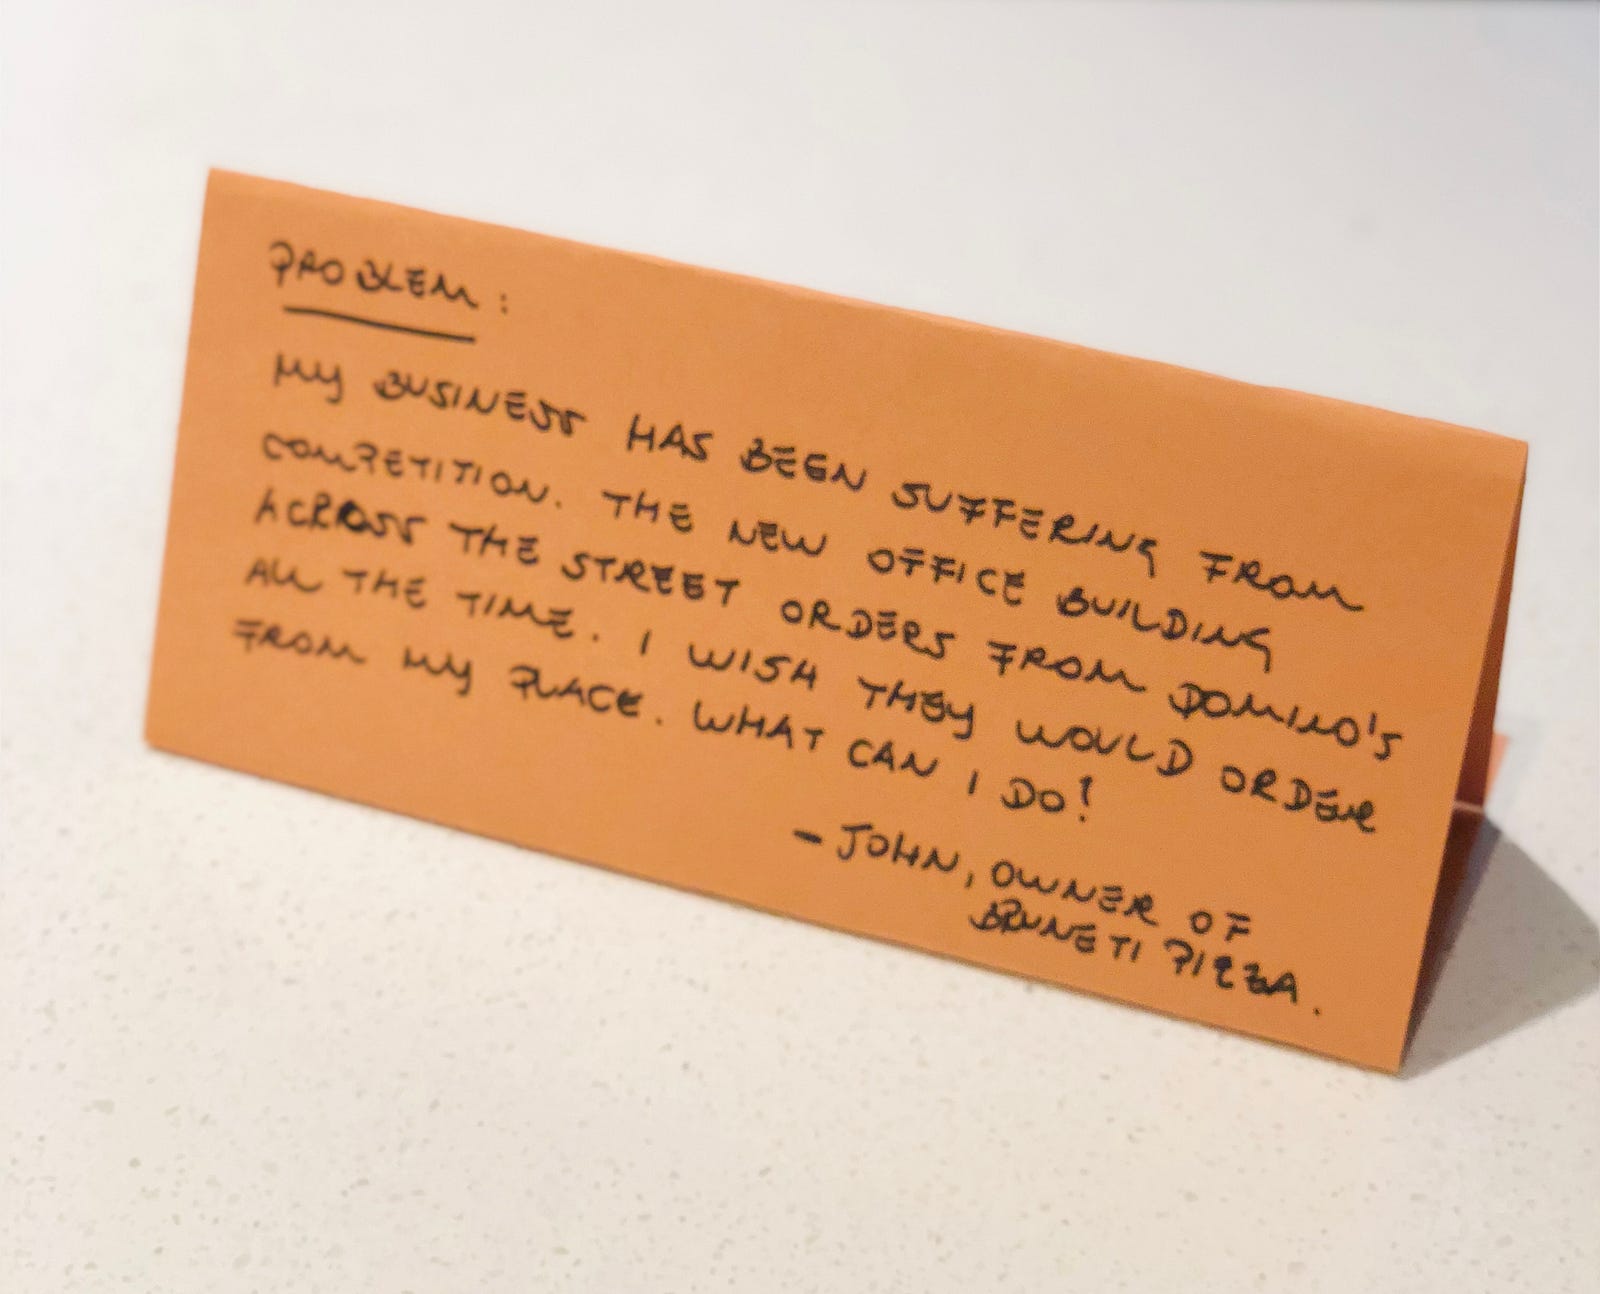 PROBLEM:
MY BUSINESS HAS BEEN SUFFERING FROM
COMPETITION. THE NEW OFFICE BUILDING
ACROSS THE STREET ORDERS FROM DOMINO'S
ALL THE TIME. I WISH THEY WOULD ORDER
FROM MY PLACE. WHAT CAN I DO?
- JOHN, OWNER OF
BRUNETI PIZZA.